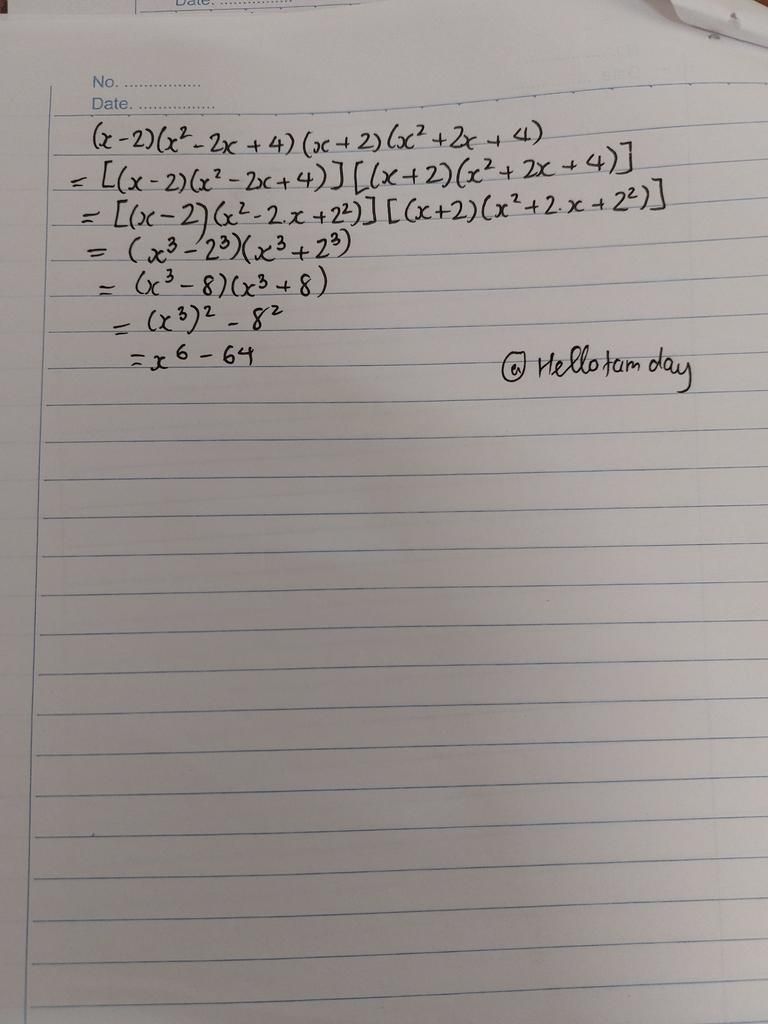 Date. ................
No. ................
Date. ................
(x-2)(x² - 2x + 4)(x+2)(x² + 2x + 4)
= [(x-2)(x² - 2x + 4)][(x+2)(x² + 2x + 4)]
= [(x-2)(x² - 2.x + 2²)][(x+2)(x² + 2.x + 2²)]
= (x³ - 2³)(x³ + 2³)
= (x³ - 8)(x³ + 8)
= (x³)² - 8²
= x⁶ - 64
@Hellotamday